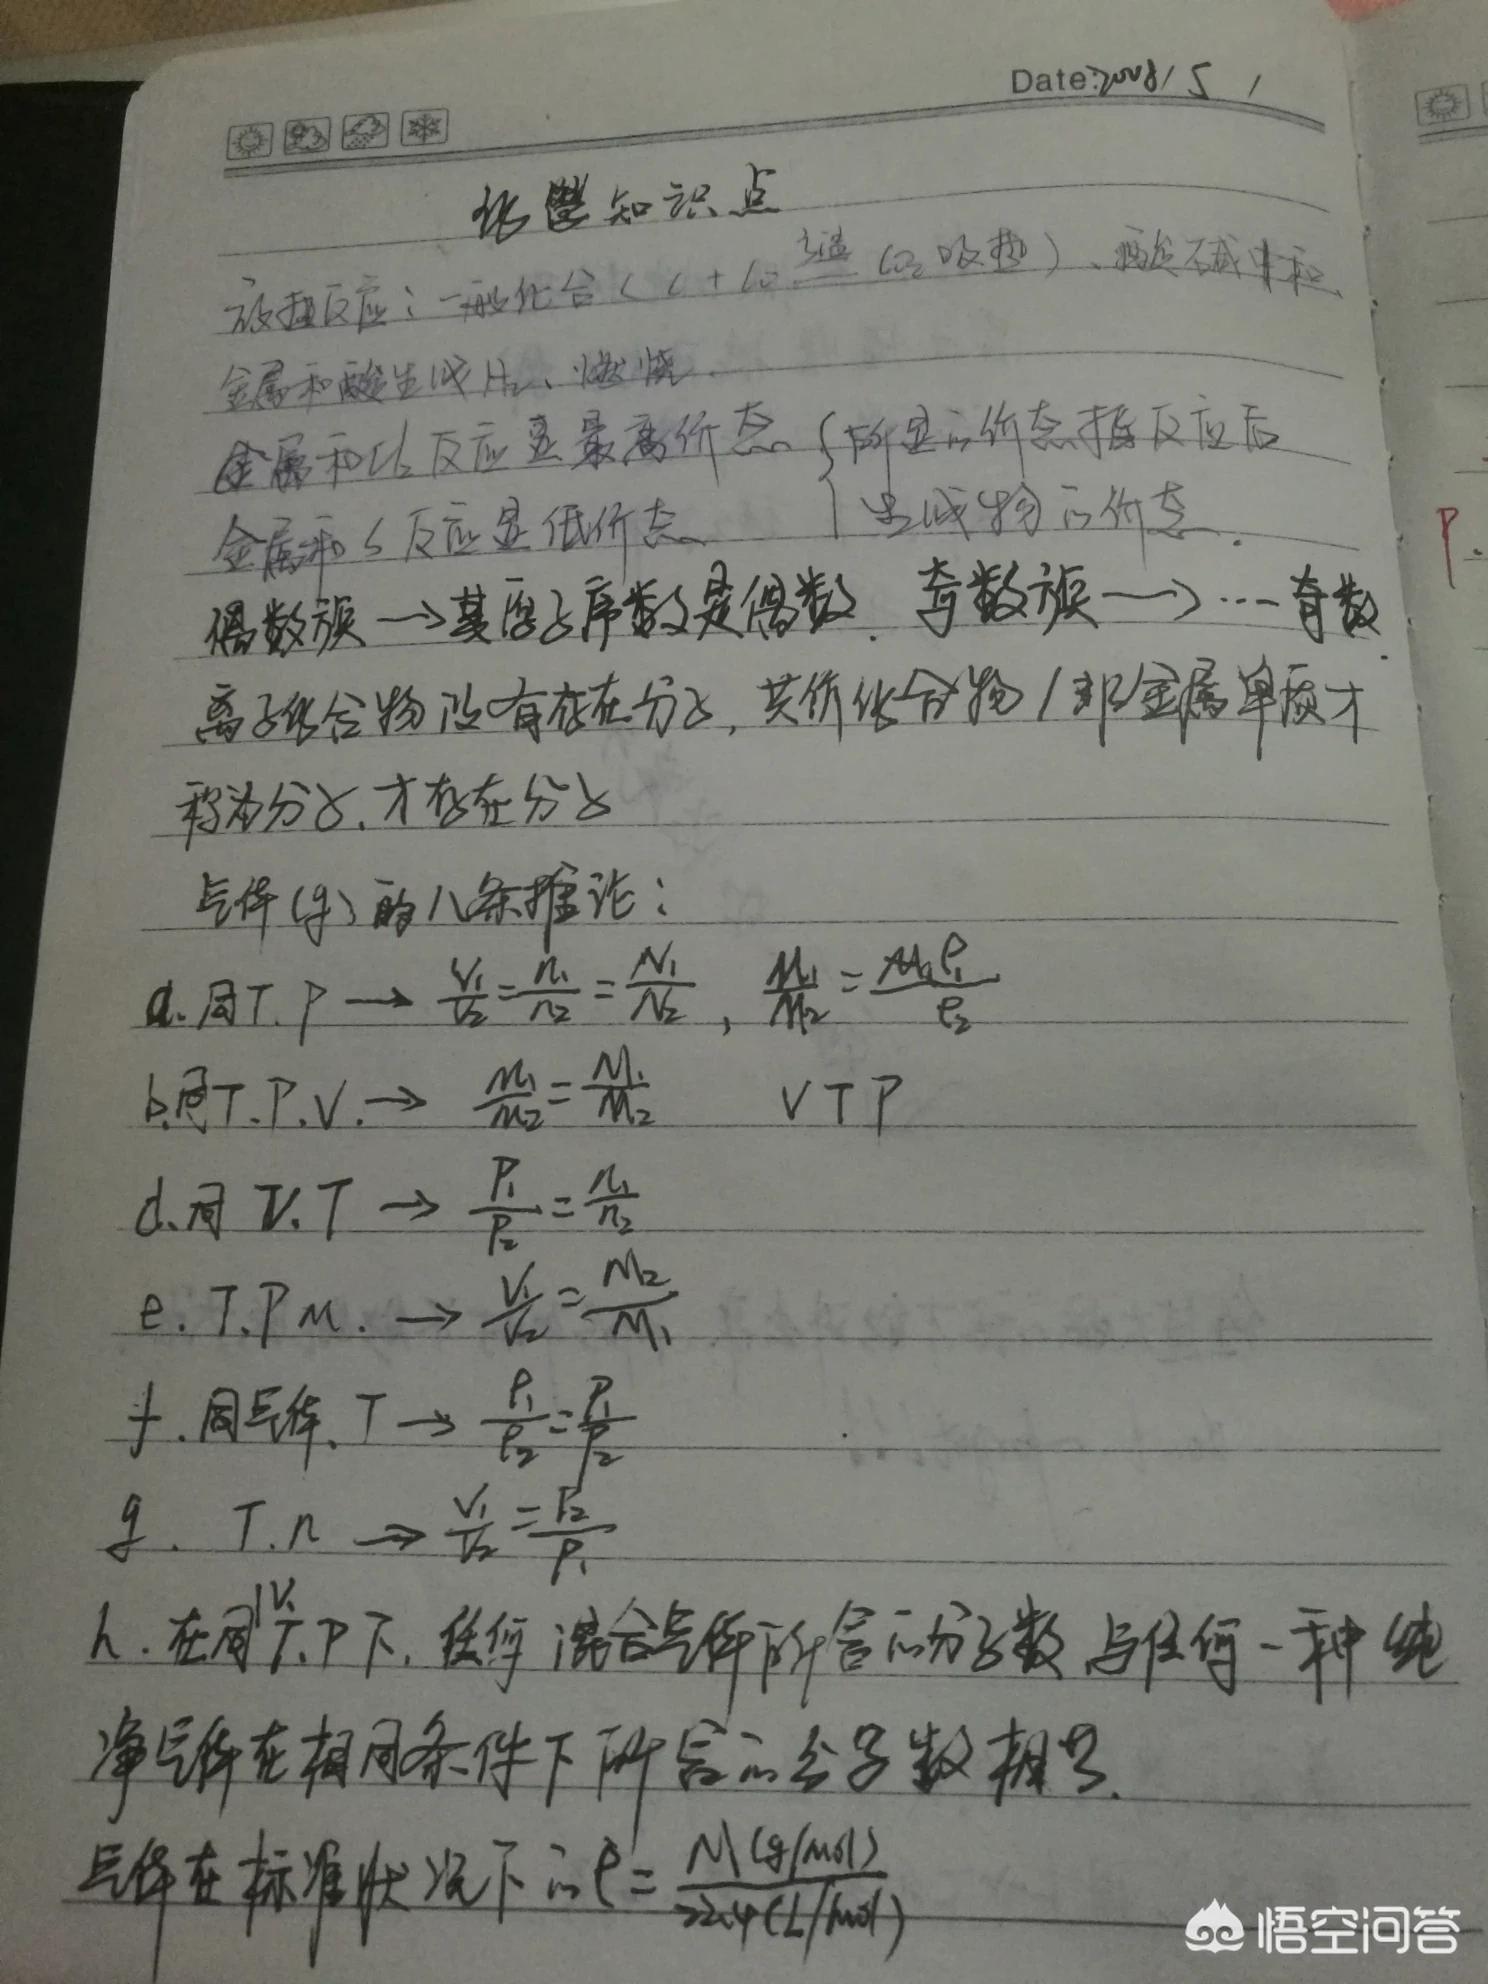 Date:2008/5/
化學知识点
放热反应:一般化合(C+CO₂ 高温 CO吸热)、酸碱中和、
金属和酸生成H₂、燃烧.
金属和Cl₂反应显最高价态 { 所显的价态指反应后
金属和S反应显低价态 生成物的价态.
偶数族→其原子序数是偶数. 奇数族→…奇数.
离子化合物没有存在分子,共价化合物/非金属单质才
称为分子、才存在分子
气体(g)的八条推论:
a.同T.P→ V₁/V₂=n₁/n₂=N₁/N₂, M₁/M₂=ρ₁/ρ₂
b.同T.P.V.→ m₁/m₂=M₁/M₂ V T P
d.同V.T→ P₁/P₂=n₁/n₂
e.T.P m.→ V₁/V₂=M₂/M₁
f.同气体、T→ ρ₁/ρ₂=P₁/P₂
g. T.n→ V₁/V₂=P₂/P₁
h.在同V.T.P下,任何混合气体所含的分子数与任何一种纯
净气体在相同条件下所含的分子数相等.
气体在标准状况下的ρ= M(g/mol)/22.4(L/mol)
悟空问答